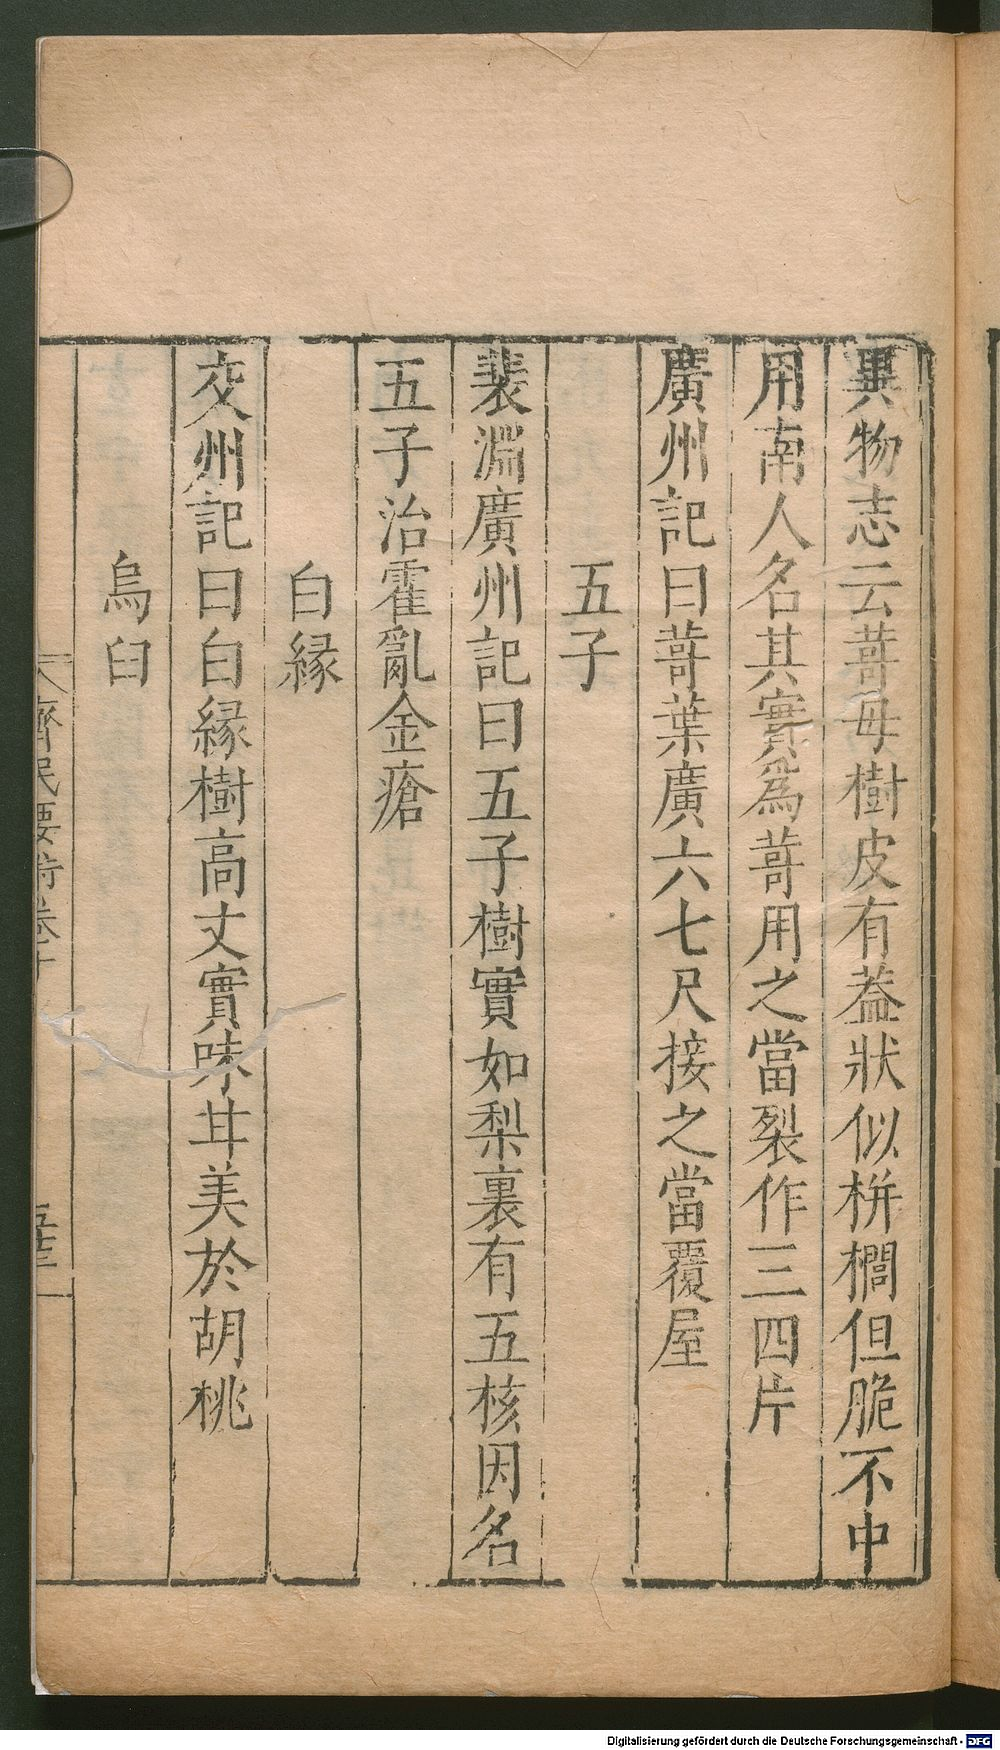 異物志云䓘母樹皮有葢狀似栟櫚但脆不中
用南人名其實爲䓘用之當裂作三四片
廣州記曰䓘葉廣六七尺接之當覆屋
五子
裴淵廣州記曰五子樹實如梨裏有五核因名
五子治霍亂金瘡
白緣
交州記曰白緣樹高丈實味甘美於胡桃
烏臼
齊民要術卷十
Digitalisierung gefördert durch die Deutsche Forschungsgemeinschaft - DFG